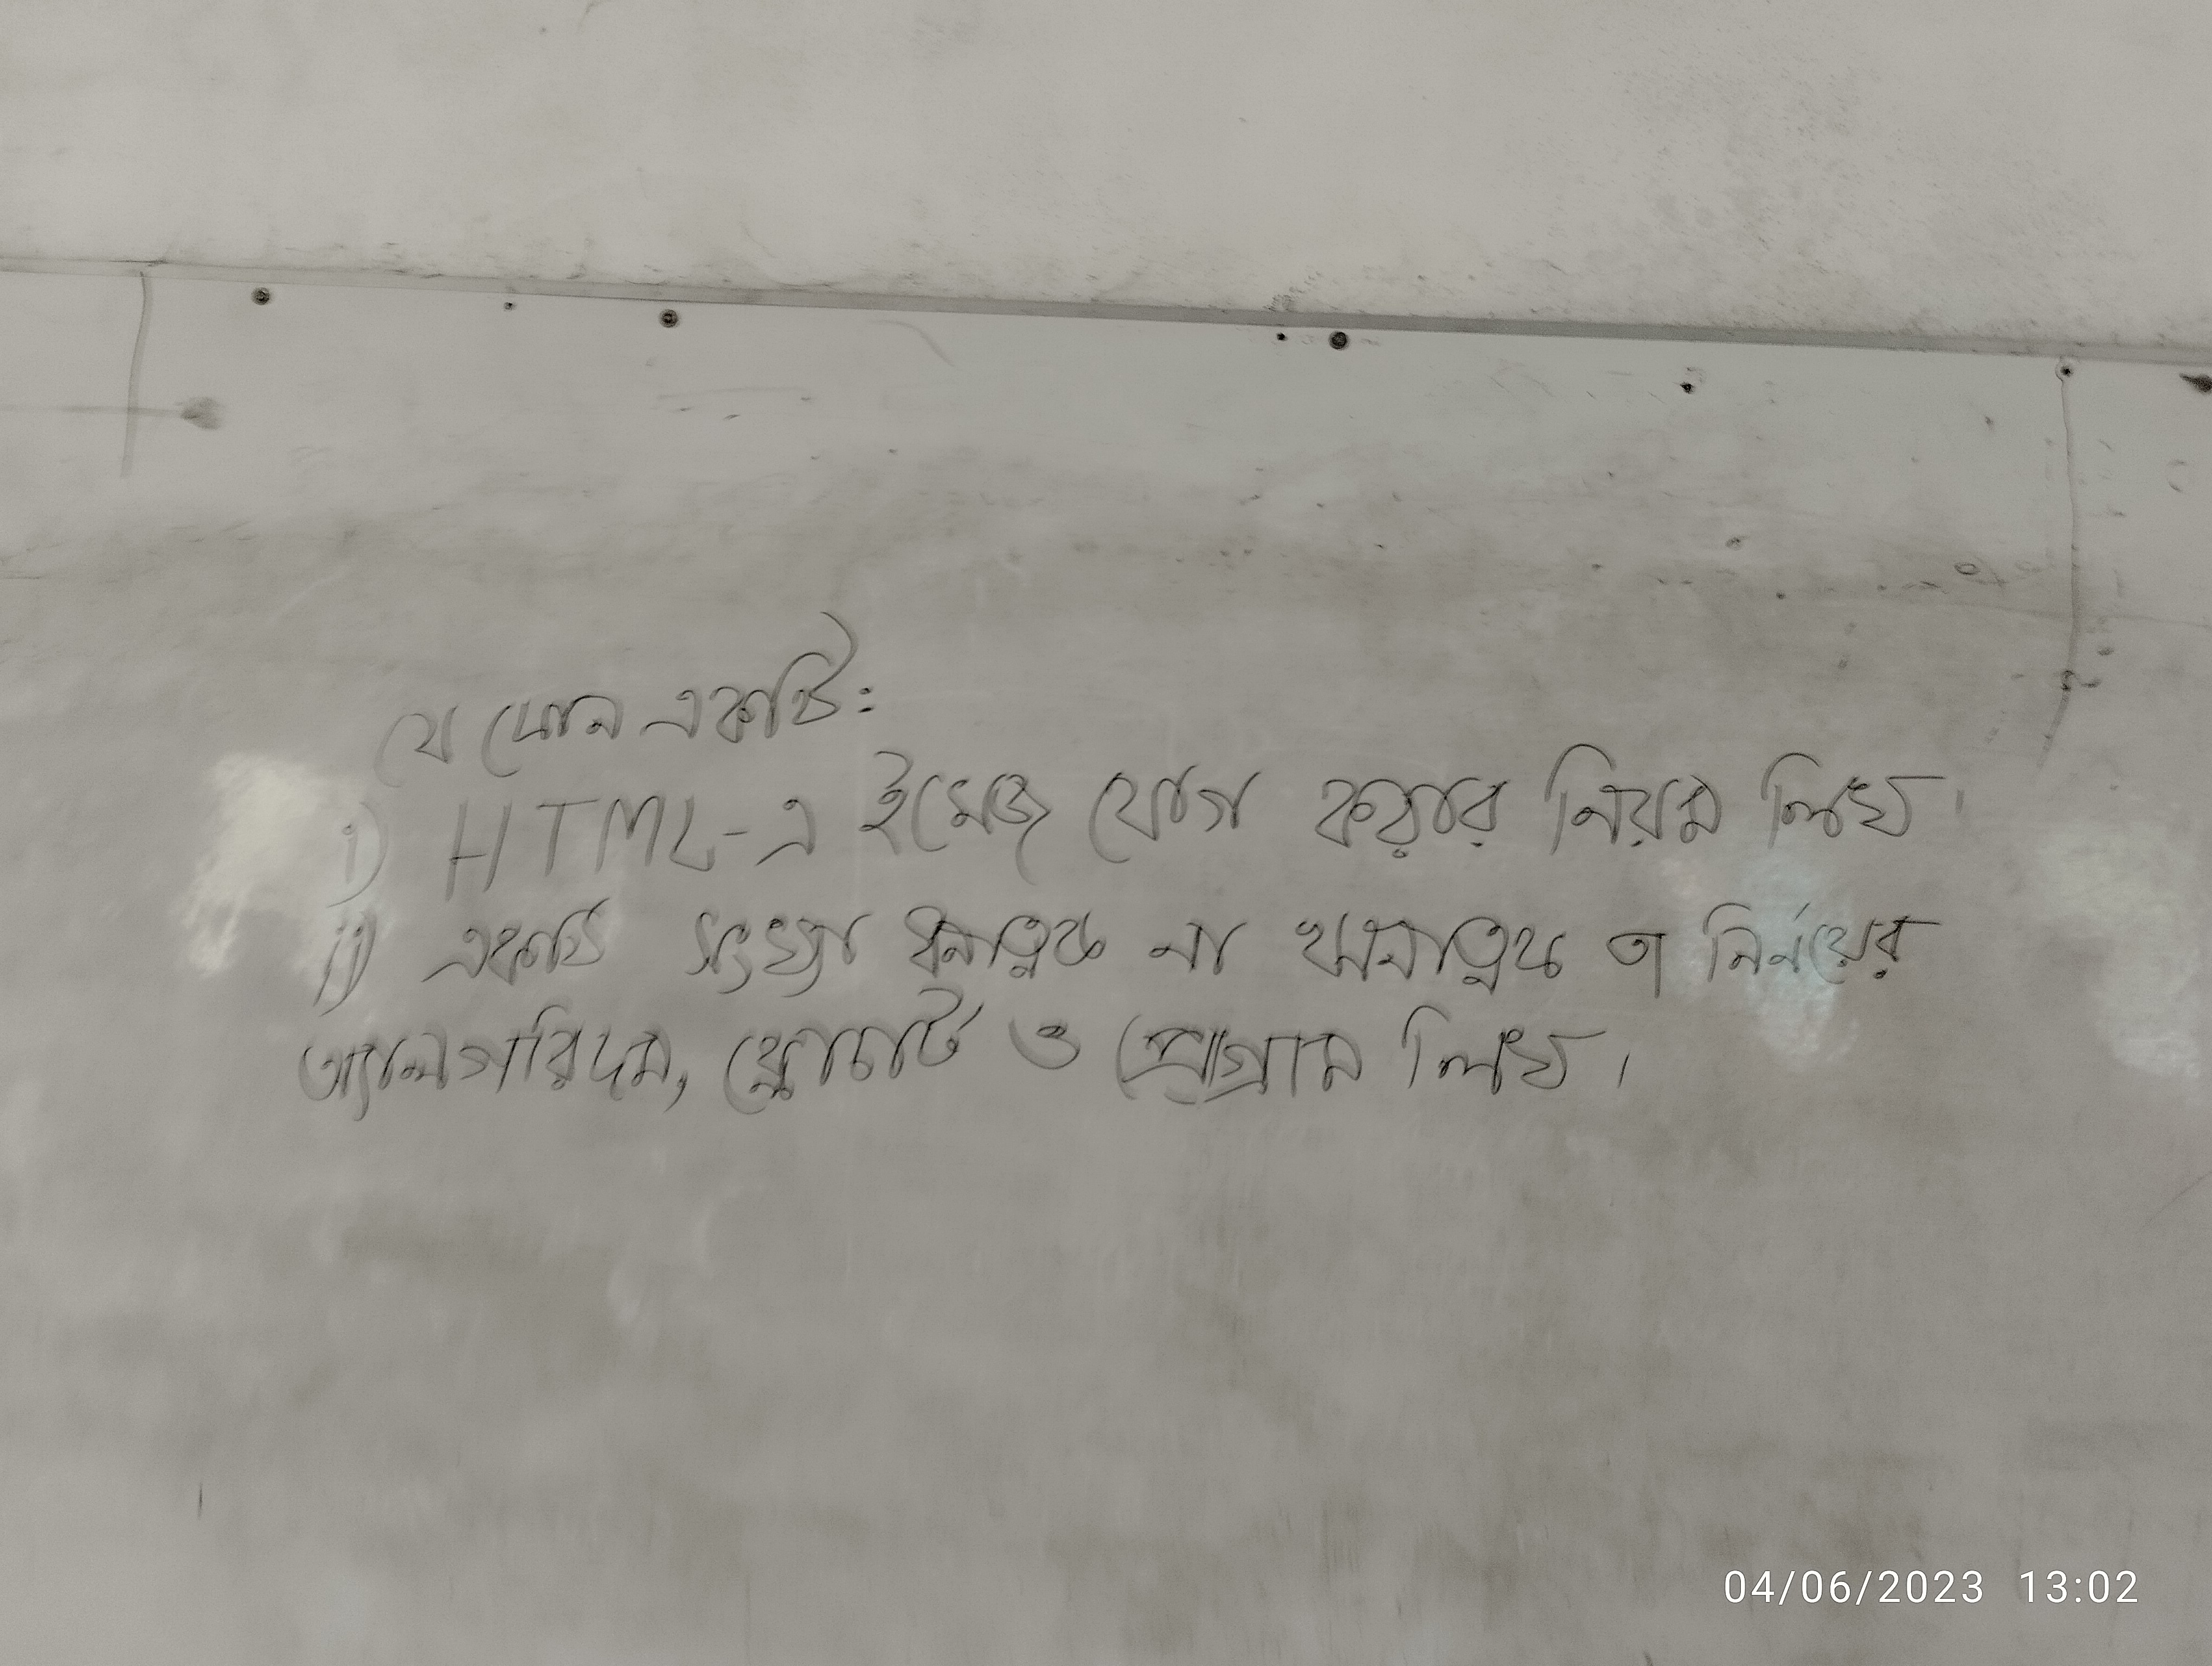 যে কোন একটি:
i) HTML-এ ইমেজ যোগ করার নিয়ম লিখ।
ii) একটি সংখ্যা ধনাত্মক না ঋনাত্মক তা নির্নয়ের
অ্যালগরিদম, ফ্লোচার্ট ও প্রোগ্রাম লিখ।
04/06/2023 13:02